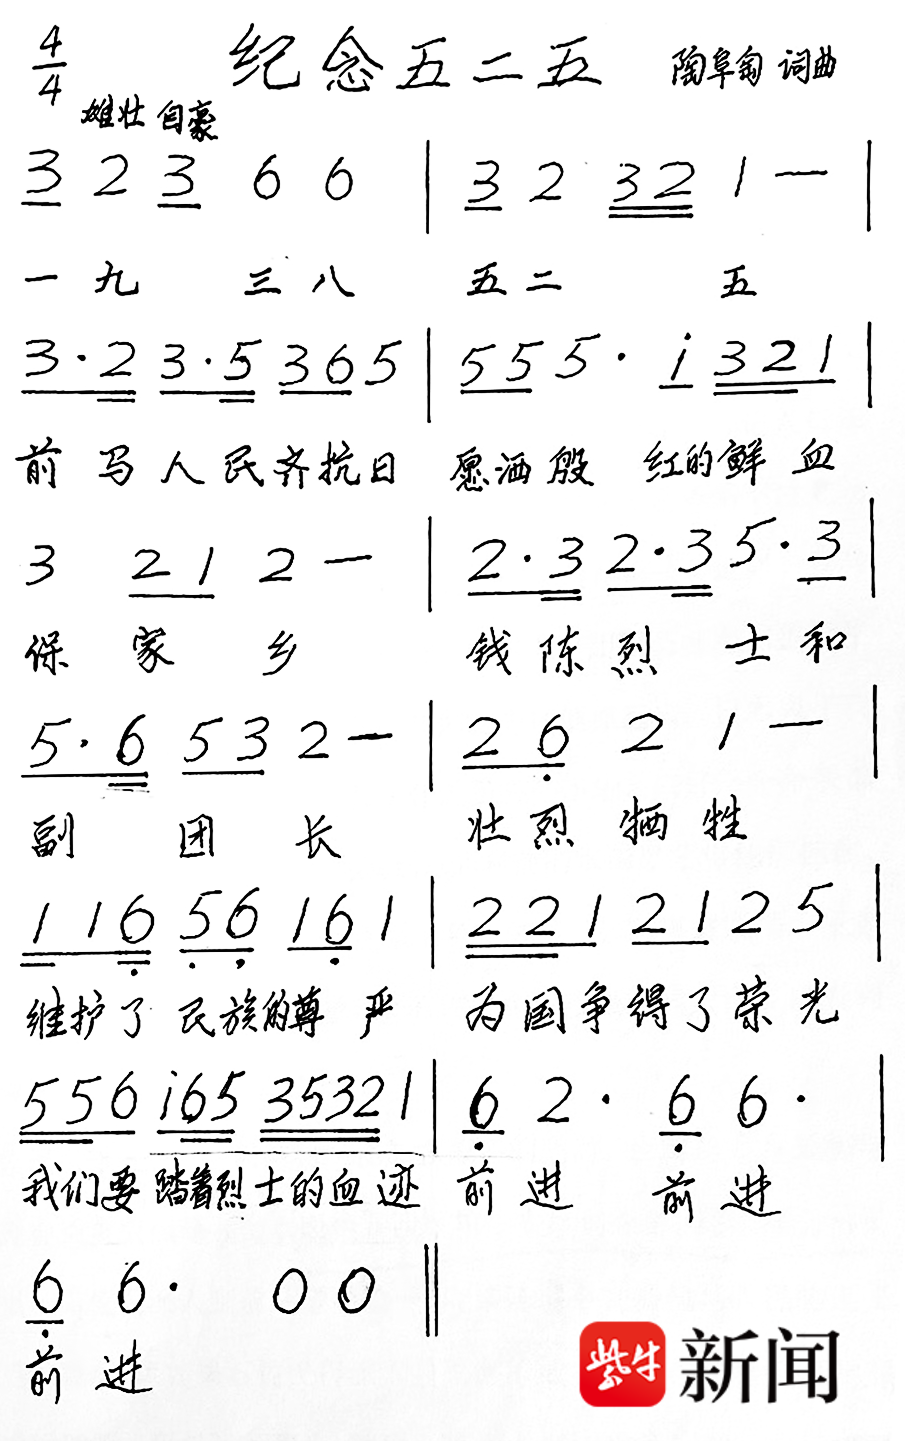 4/4 纪念五二五 陶阜匋 词曲
雄壮 自豪
3 2 3 6 6 | 3 2 32 1 — |
一九 三八 五二 五
3·2 3·5 365 | 55 5· i 321 |
前马人民齐抗日 愿洒殷 红的鲜血
3 21 2 — | 2·3 2·3 5·3 |
保家乡 钱陈烈士和
5·6 53 2 — | 26 2 1 — |
副团长 壮烈牺牲
116 56 16 1 | 221 21 2 5 |
维护了民族的尊严 为国争得了荣光
556 i65 3532 1 | 6 2· 6 6· |
我们要踏着烈士的血迹 前进 前进
6 6· 0 0 ‖
前进
紫牛 新闻